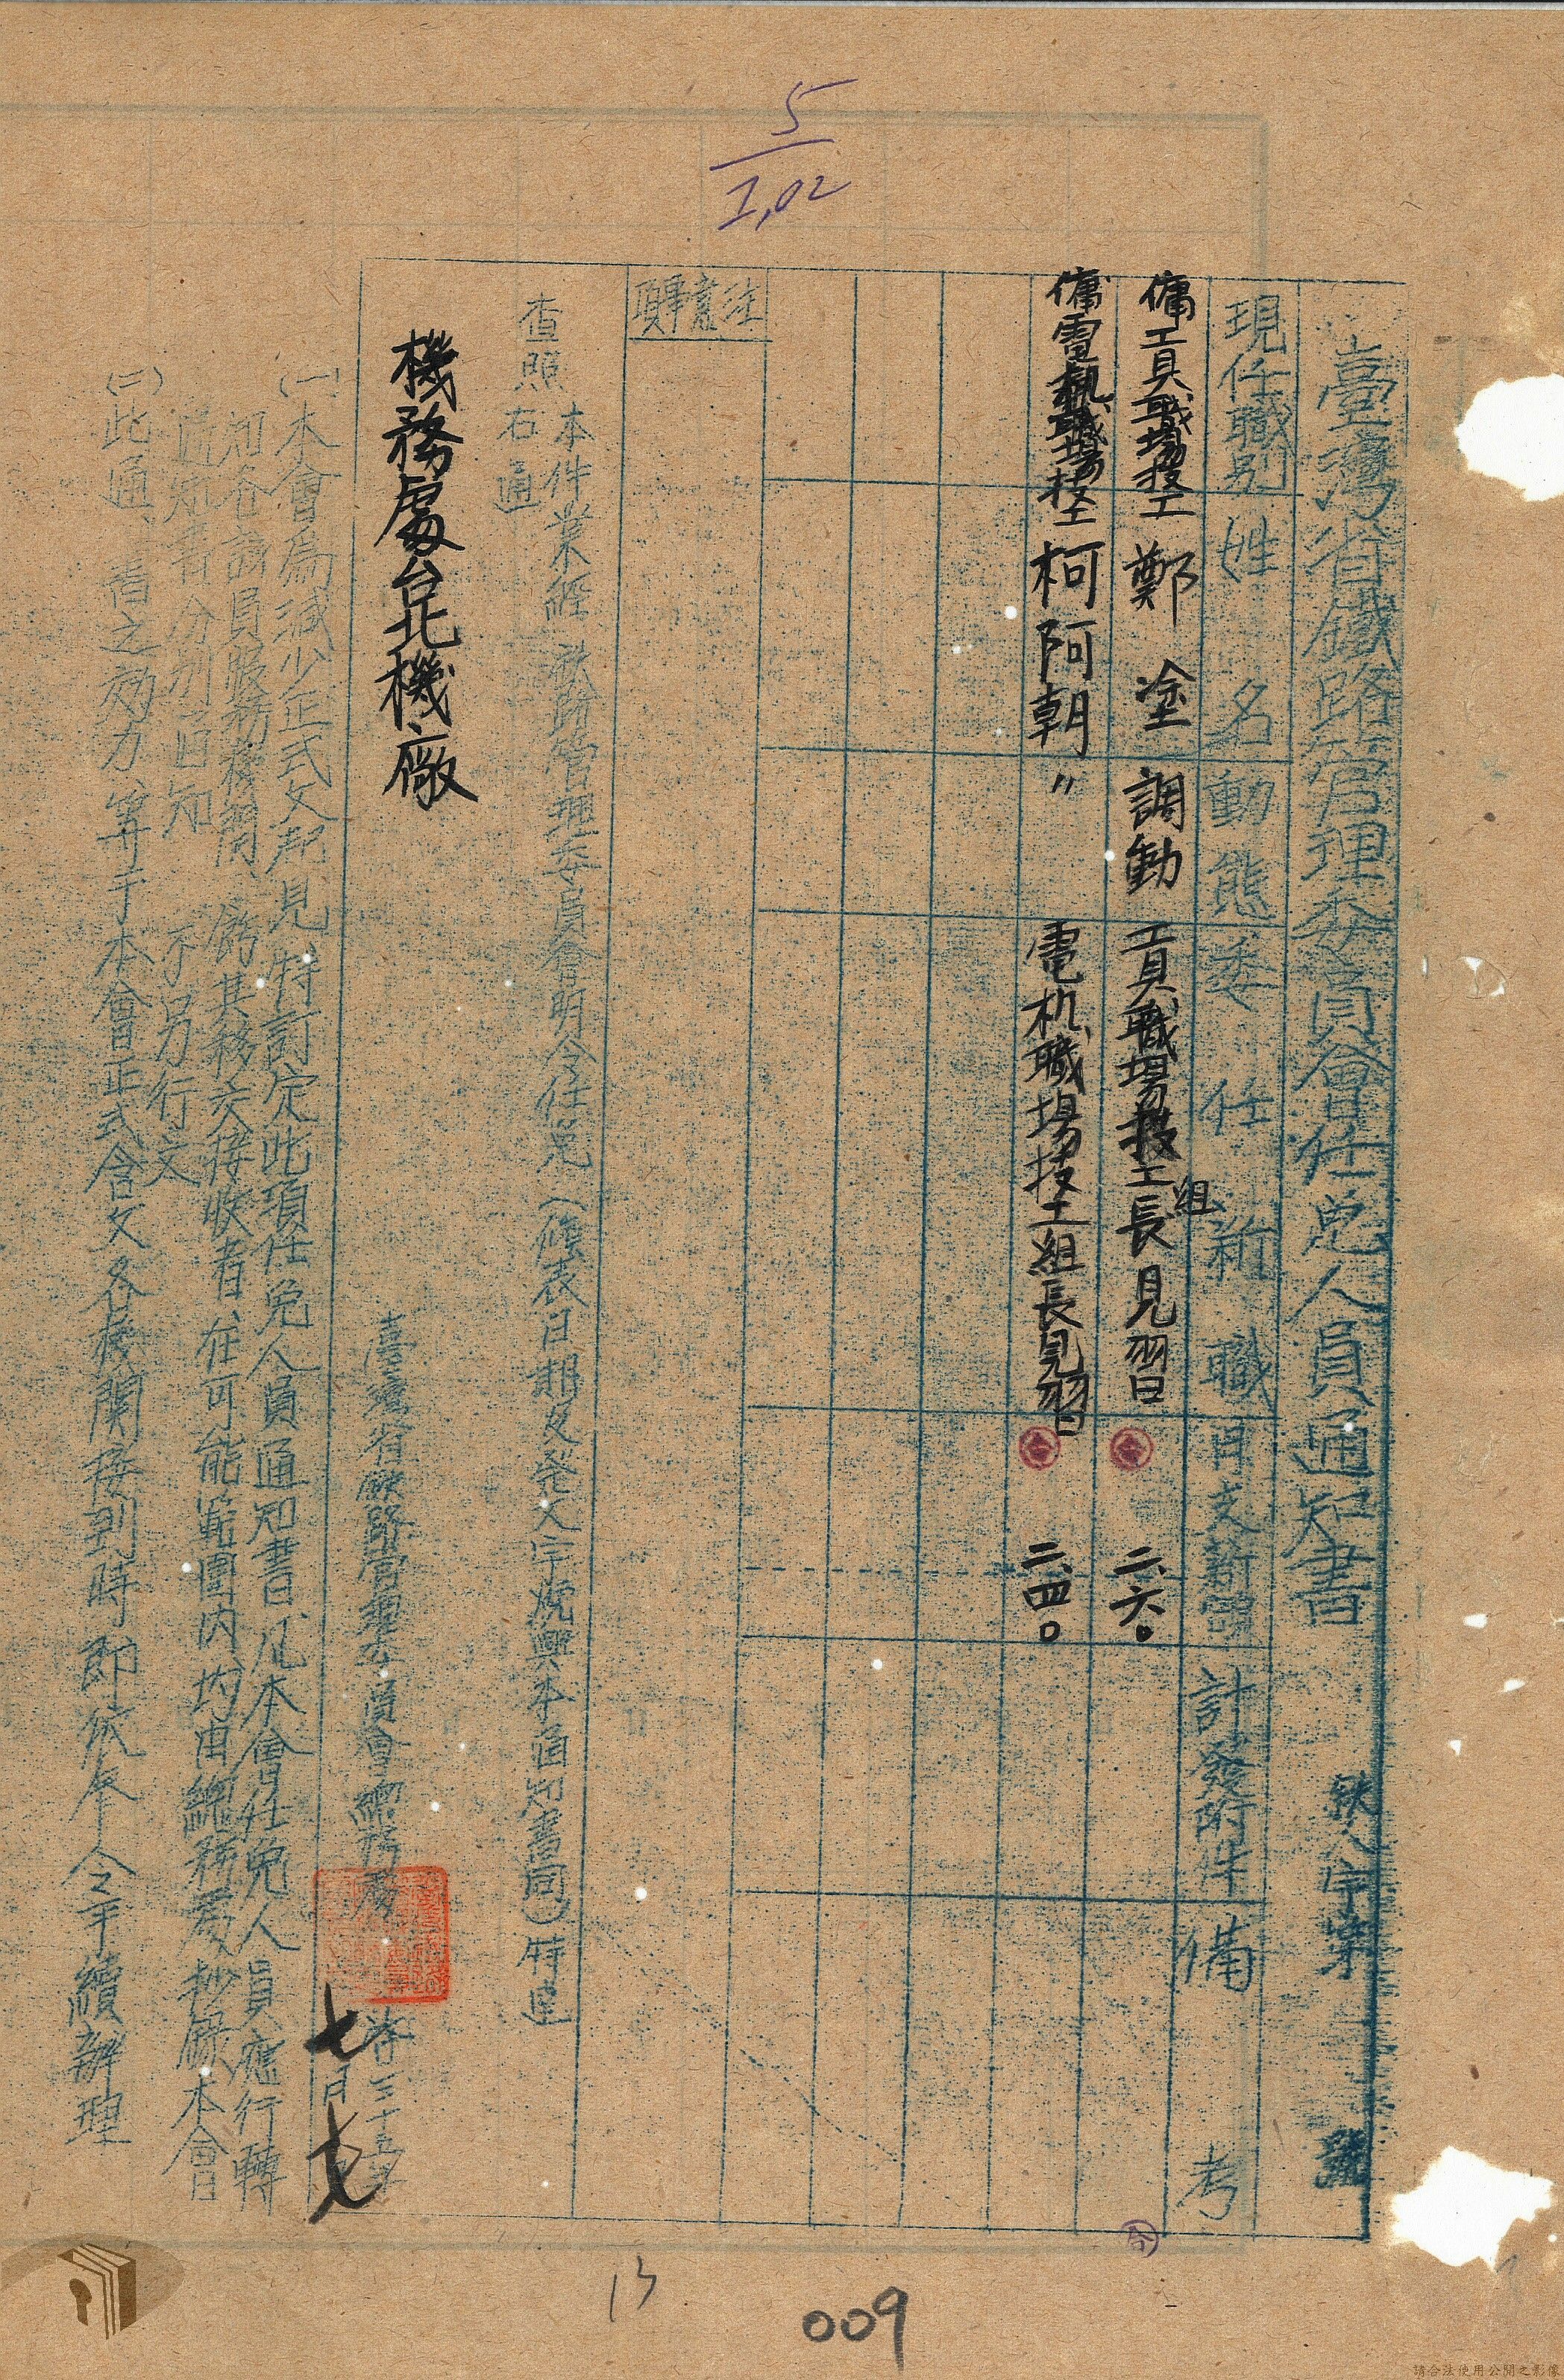 5
1,02
臺灣省鐵路管理委員會任免人員通知書 鉄人字第 號
現任職別 姓名 動態 委任新職 月支薪額 計發附件 備考
傭工具職場技工 鄭塗 調動 工具職場技工組長見習 二六〇
傭電機職場技工 柯阿朝 〃 電机職場技工組長見習 二四〇
注意事項
本件業經 鉄路管理委員會明令任免(條表日期及發文字號與本通知書同)特達
查照右通
機務處台北機廠
臺灣省鐵路管理委員會總務處 卅三十五年七月七日
(一)本會為減少正式文起見特訂定此項任免人員通知書凡本會任免人員應行轉
知各該員服務機關 飭其移交接收者在可能範圍内均由總務處抄錄本會
通知書分別函知 不另行文
(二)此通知書之効力等于本會正式令文各機関接到時即依本令手續辦理
13
009
請合法使用公開之影像